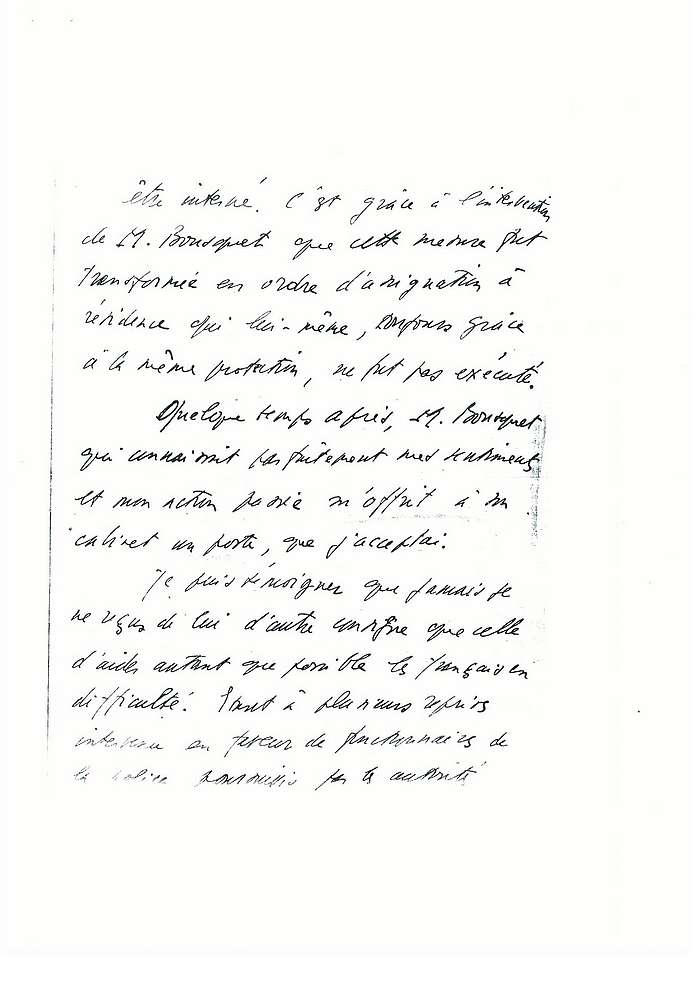 être interné. C'est grâce à l'intervention
de M. Bousquet que cette mesure fut
transformée en ordre d'assignation à
résidence qui lui-même, toujours grâce
à la même protection, ne fut pas exécuté.
Quelque temps après, M. Bousquet
qui connaissait parfaitement mes sentiments
et mon action passée m'offrit à son
cabinet un poste, que j'acceptai.
Je puis témoigner que jamais je
ne reçus de lui d'autre consigne que celle
d'aider autant que possible les français en
difficulté. à plusieurs reprises
intervenu en faveur de fonctionnaires de
la police poursuivis par les autorités